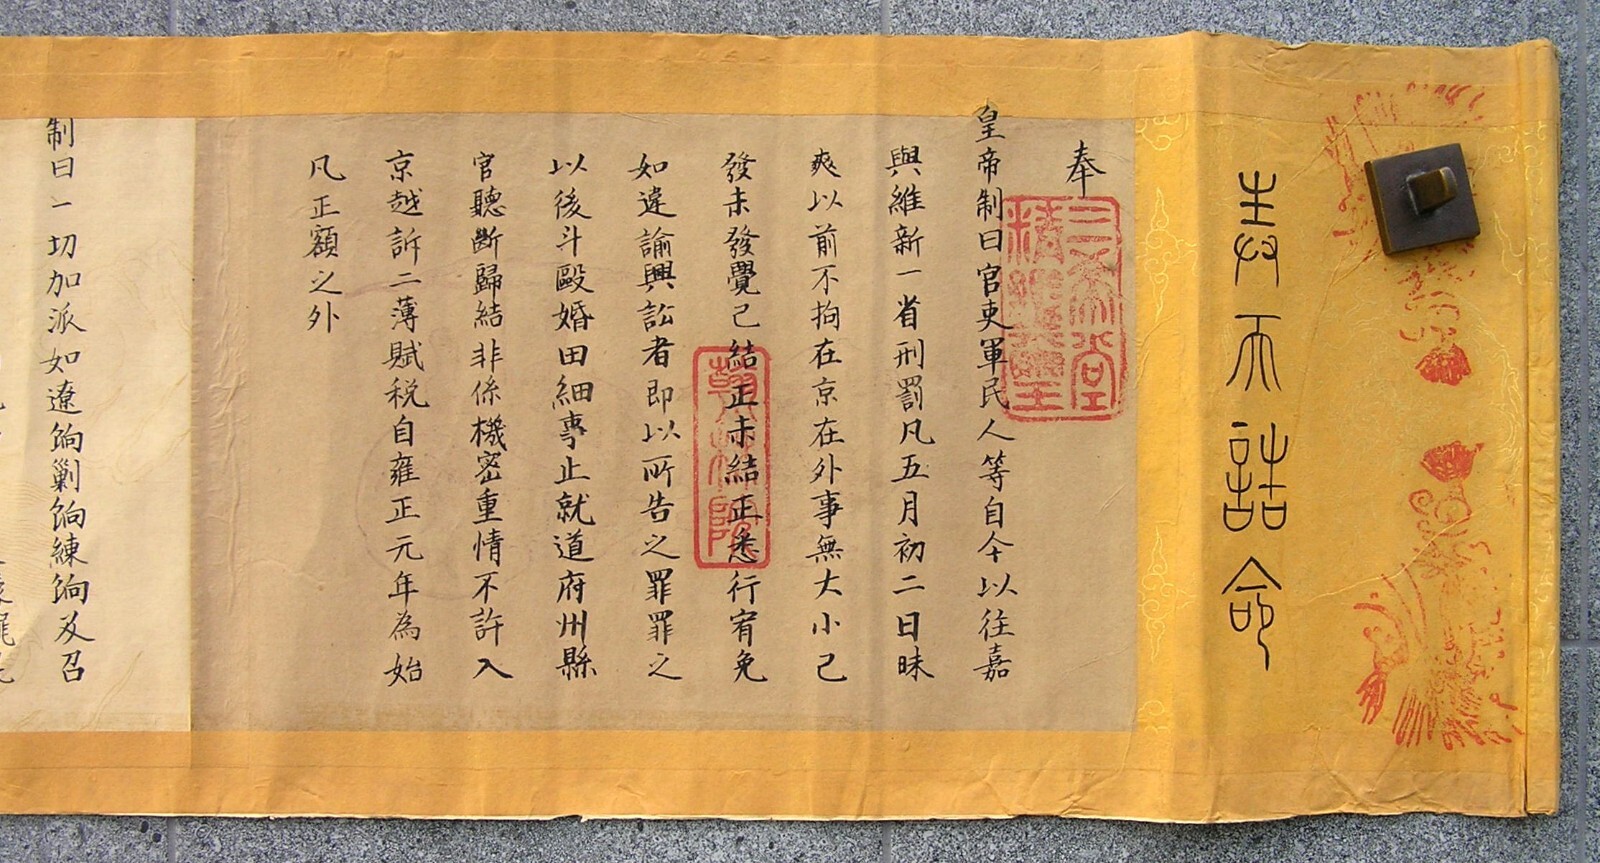 奉天誥命
奉
皇帝制曰官吏軍民人等自今以往嘉
與維新一省刑罰凡五月初二日昧
爽以前不拘在京在外事無大小已
發未發覺已結正未結正悉行宥免
如違諭興訟者即以所告之罪罪之
以後斗毆婚田細事止就道府州縣
官聽斷歸結非係機密重情不許入
京越訴二薄賦稅自雍正元年為始
凡正額之外
制曰一切加派如遼餉剿餉練餉及召
三希堂精鑑璽
翰林院